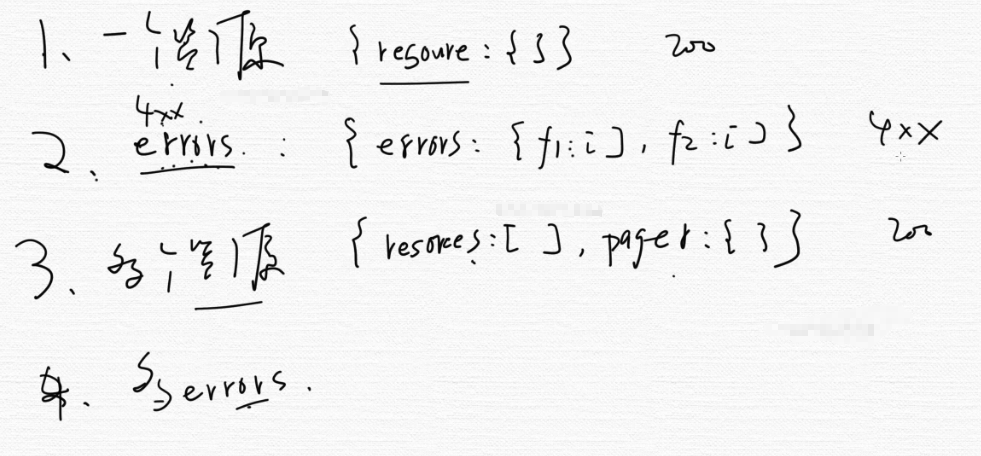 1、一个资源 { resoure : { } } 200
4xx.
2、errors. : { errors: { f1:[ ], f2:[ ] } 4xx
3、多个资源 { resorces:[ ], pager:{ } } 200
4. 多errors.